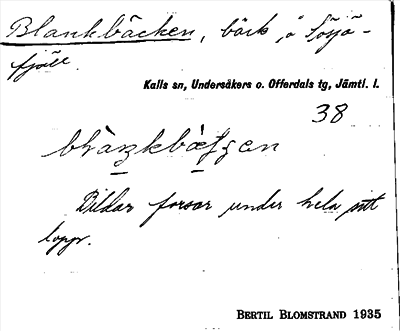 Blankbäcken, bäck, å Sösjö-
fjäll.
Kalls sn, Undersåkers o. Offerdals tg, Jämtl. l.
38
Bildar forsar under hela sitt
lopp.
BERTIL BLOMSTRAND 1935